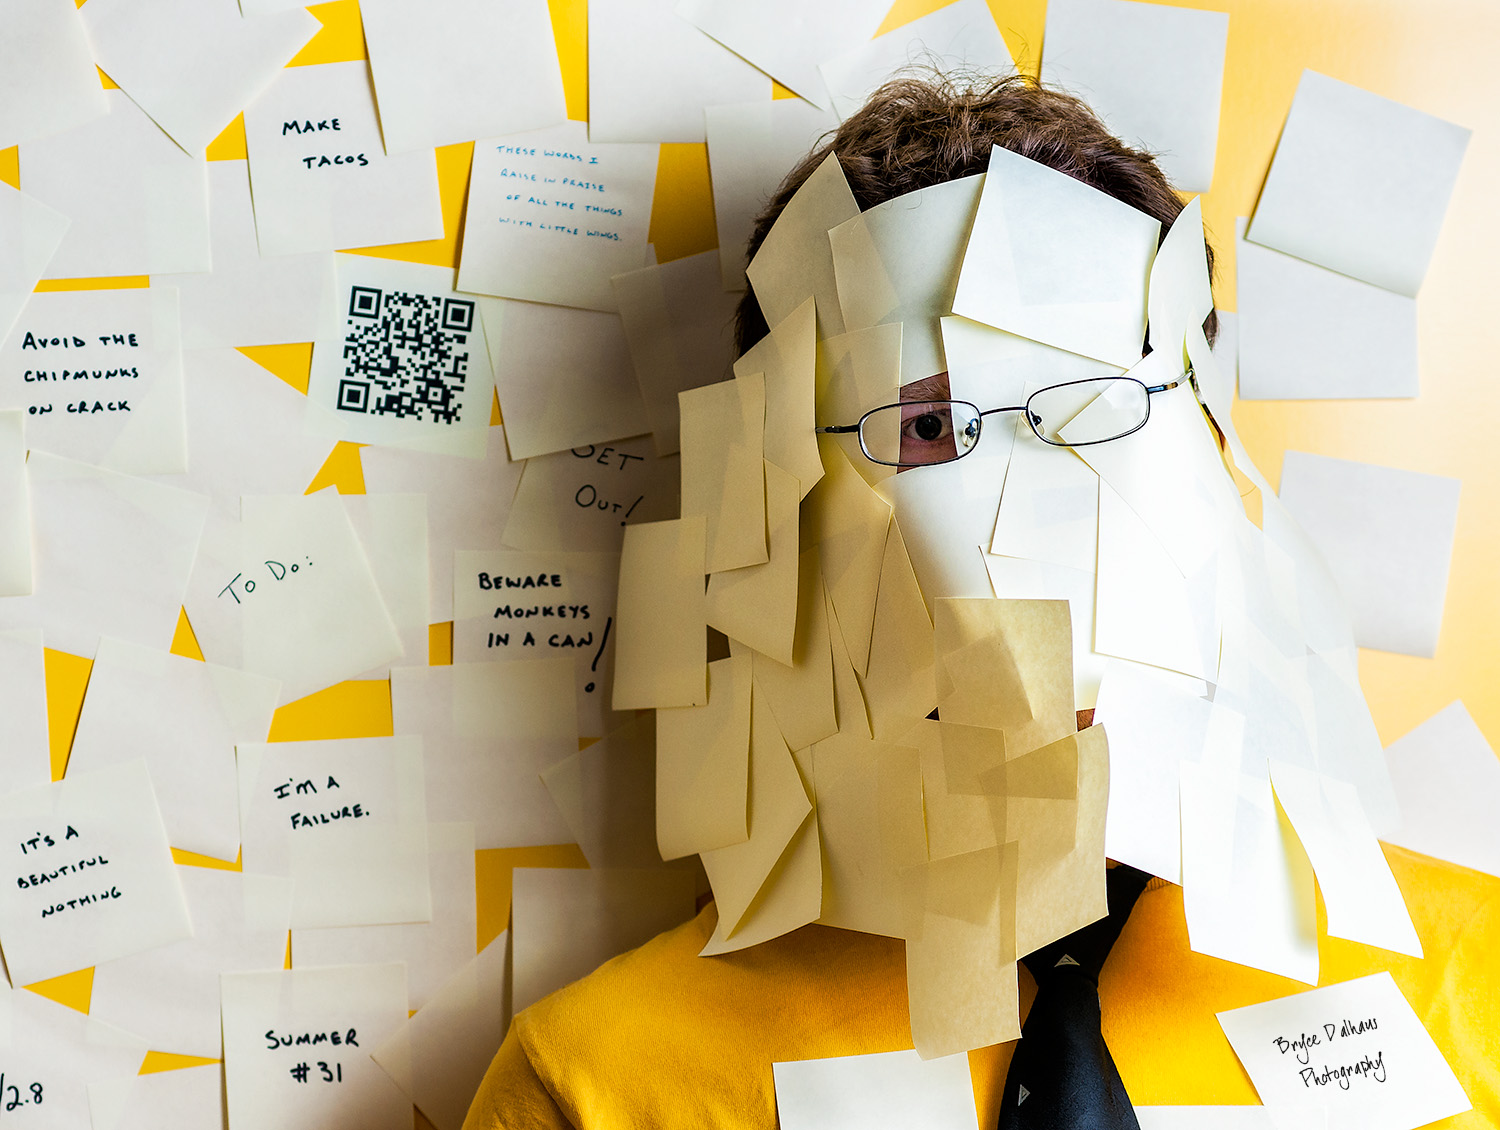 MAKE
TACOS
THESE WORDS I
RAISE IN PRAISE
OF ALL THE THINGS
WITH LITTLE WINGS.
AVOID THE
CHIPMUNKS
ON CRACK
GET
OUT!
TO DO:
BEWARE
MONKEYS
IN A CAN!
I'M A
FAILURE.
IT'S A
BEAUTIFUL
NOTHING
SUMMER
#31
/2.8
Bryce Dalhaus
Photography